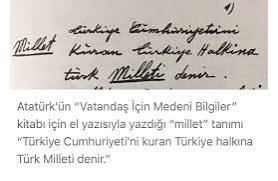 1)
Millet Türkiye Cumhuriyetini
kuran Türkiye Halkına
türk Milleti denir.
Atatürk'ün "Vatandaş İçin Medeni Bilgiler"
kitabı için el yazısıyla yazdığı "millet" tanımı
"Türkiye Cumhuriyeti'ni kuran Türkiye halkına
Türk Milleti denir."